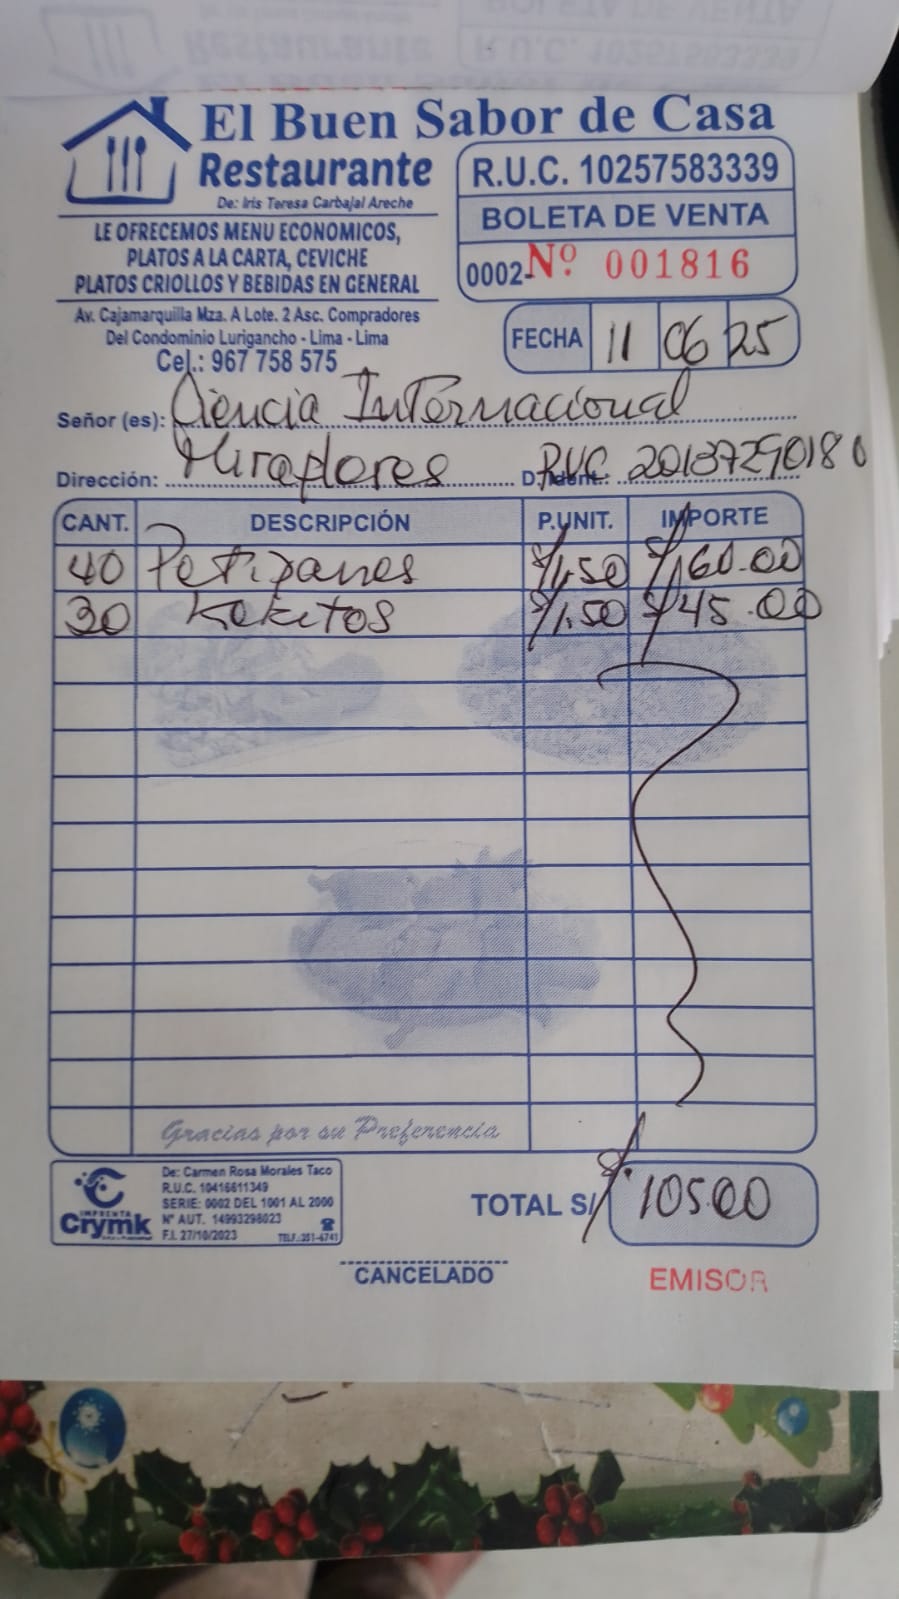 El Buen Sabor de Casa
Restaurante
De: Iris Teresa Carbajal Areche
LE OFRECEMOS MENU ECONOMICOS,
PLATOS A LA CARTA, CEVICHE
PLATOS CRIOLLOS Y BEBIDAS EN GENERAL
Av. Cajamarquilla Mza. A Lote. 2 Asc. Compradores
Del Condominio Lurigancho - Lima - Lima
Cel.: 967 758 575
R.U.C. 10257583339
BOLETA DE VENTA
0002-Nº 001816
FECHA 11 06 25
Señor (es): Ciencia Internacional
Dirección: Miraflores D. Ident.: RUC 20137290180
CANT. DESCRIPCIÓN P.UNIT. IMPORTE
40 Petipanes S/1.50 S/160.00
30 Kekitos S/1.50 S/45.00
Gracias por su Preferencia
IMPRENTA
Crymk
De: Carmen Rosa Morales Taco
R.U.C. 10416611349
SERIE: 0002 DEL 1001 AL 2000
Nº AUT. 14993298023
F.I. 27/10/2023 TELF.:351-6741
TOTAL S/ S/. 105.00
CANCELADO
EMISOR